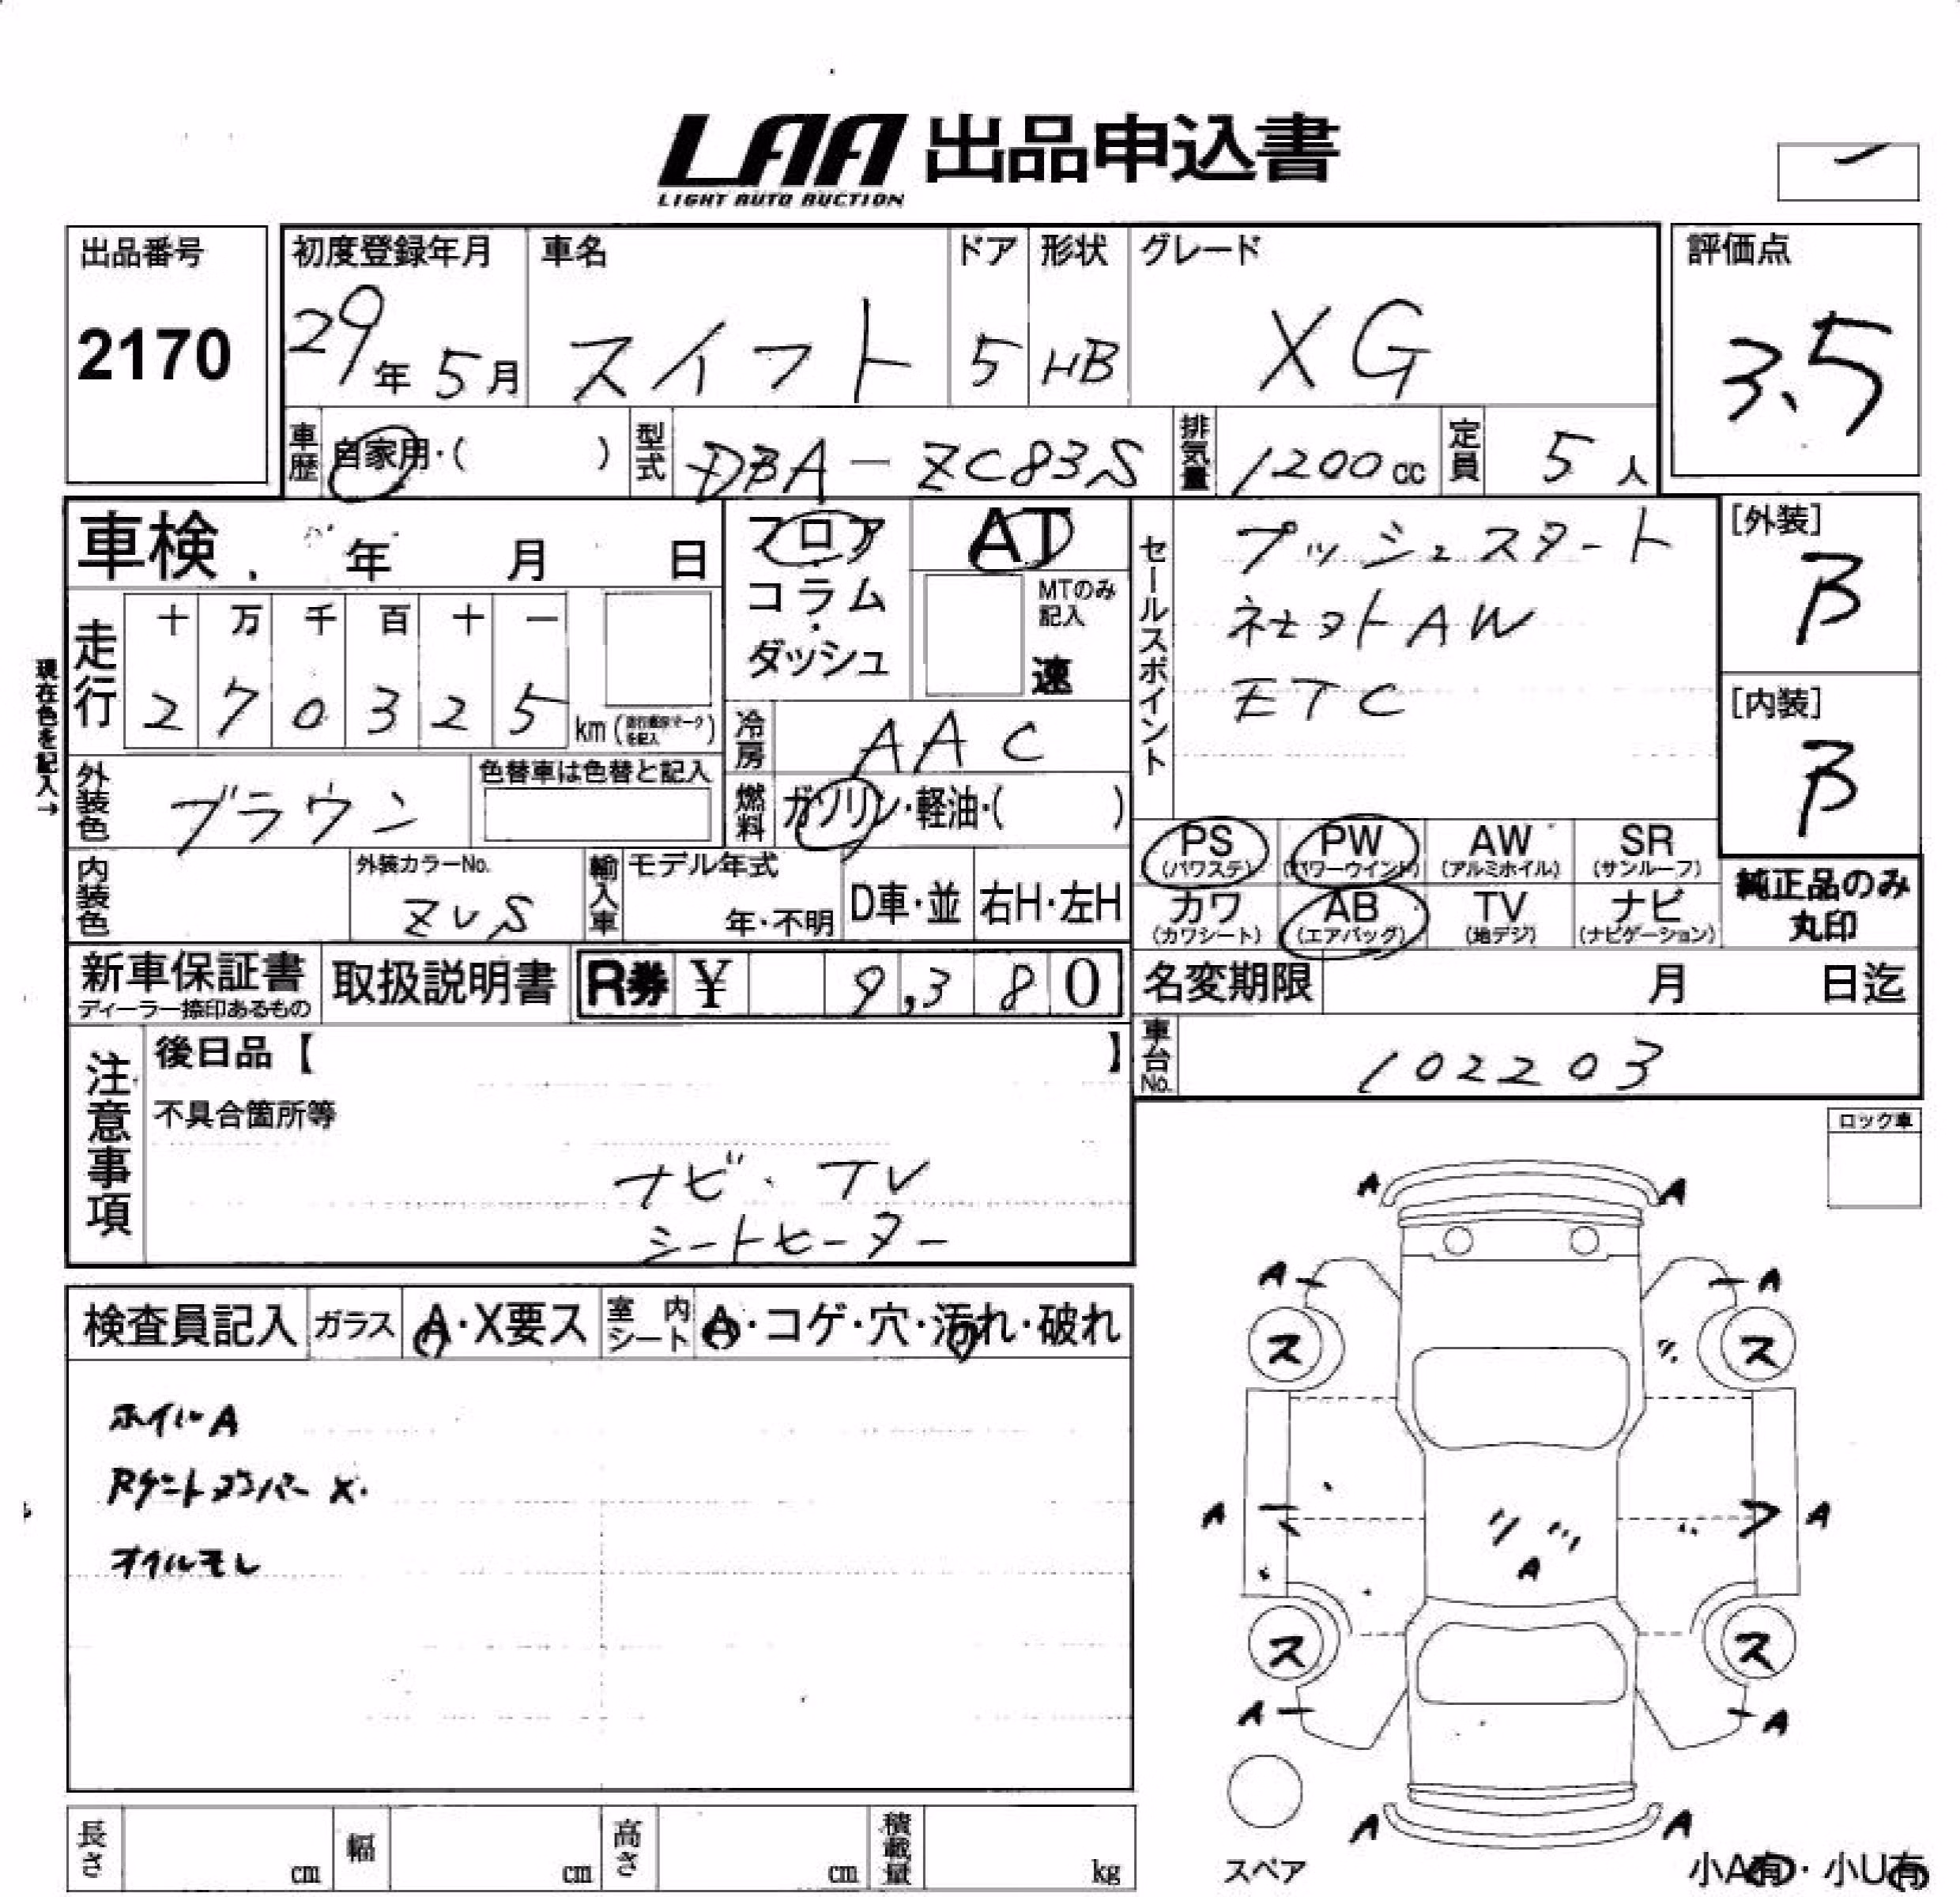 LAA 出品申込書
LIGHT AUTO AUCTION
出品番号
2170
初度登録年月
29年 5月
車名
スイフト
ドア
5
形状
HB
グレード
XG
評価点
3.5
車歴
自家用・( )
型式
DBA-ZC83S
排気量
1200cc
定員
5人
車検 年 月 日
フロア
コラム
ダッシュ
AT
MTのみ記入
速
セールスポイント
プッシュスタート
ネセットAW
ETC
[外装]
B
[内装]
B
現在色を記入→
走行
十 万 千 百 十 一
2 7 0 3 2 5
km
冷房
AAC
外装色
ブラウン
色替車は色替と記入
燃料
ガソリン・軽油・( )
PS
(パワステ)
PW
(パワーウインド)
AW
(アルミホイル)
SR
(サンルーフ)
カワ
(カワシート)
AB
(エアバッグ)
TV
(地デジ)
ナビ
(ナビゲーション)
純正品のみ
丸印
内装色
外装カラーNo.
ZVS
輸入車
モデル年式
年・不明
D車・並
右H・左H
新車保証書
ディーラー捺印あるもの
取扱説明書
R券 ¥ 9,380
名変期限 月 日迄
車台No.
102203
注意事項
後日品【 】
不具合箇所等
ナビ・TV
シートヒーター
ロック車
検査員記入
ガラス
A・X要ス
室内シート
A・コゲ・穴・汚れ・破れ
ホイルA
オイルモレ
A A
A A
ス ス
A A
A
ス ス
A A
A A
スペア
小A有・小U有
長さ cm
幅 cm
高さ cm
積載量 kg